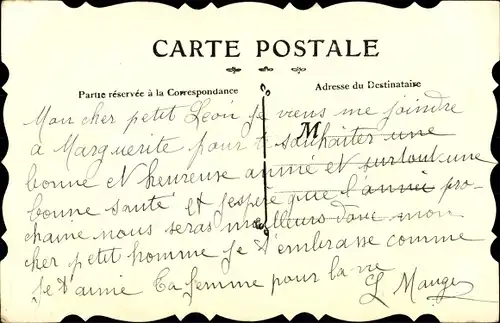 CARTE POSTALE
Partie réservée à la Correspondance
Adresse du Destinataire
M
Mon cher petit Léon je viens me joindre
à Marguerite pour te souhaiter une
bonne et heureuse année et surtout une
bonne santé et j'espère que l'année pro-
chaine nous seras meilleurs donc mon
cher petit homme je t'embrasse comme
je t'aime ta femme pour la vie
L Mauge